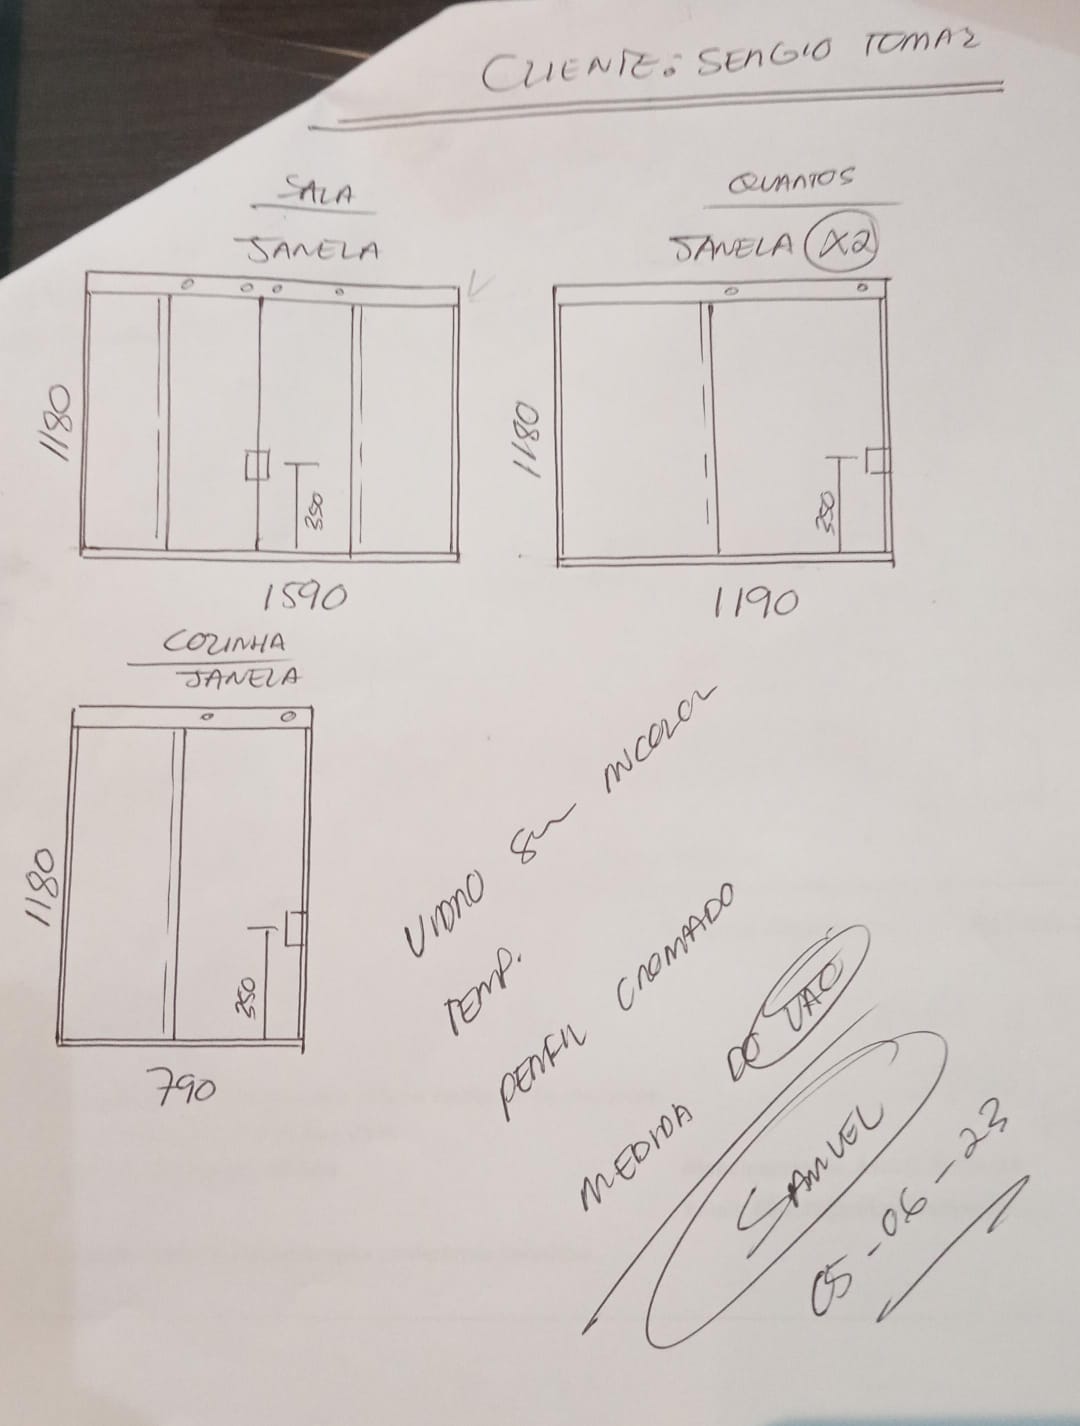 CLIENTE: SERGIO TOMAZ
SALA
JANELA
1180
350
1590
QUARTOS
JANELA X2
1180
350
1190
COZINHA
JANELA
1180
350
790
VIDRO 8m INCOLOR
TEMP.
PERFIL CROMADO
MEDIDA DO VAO
SAMUEL
05-06-23